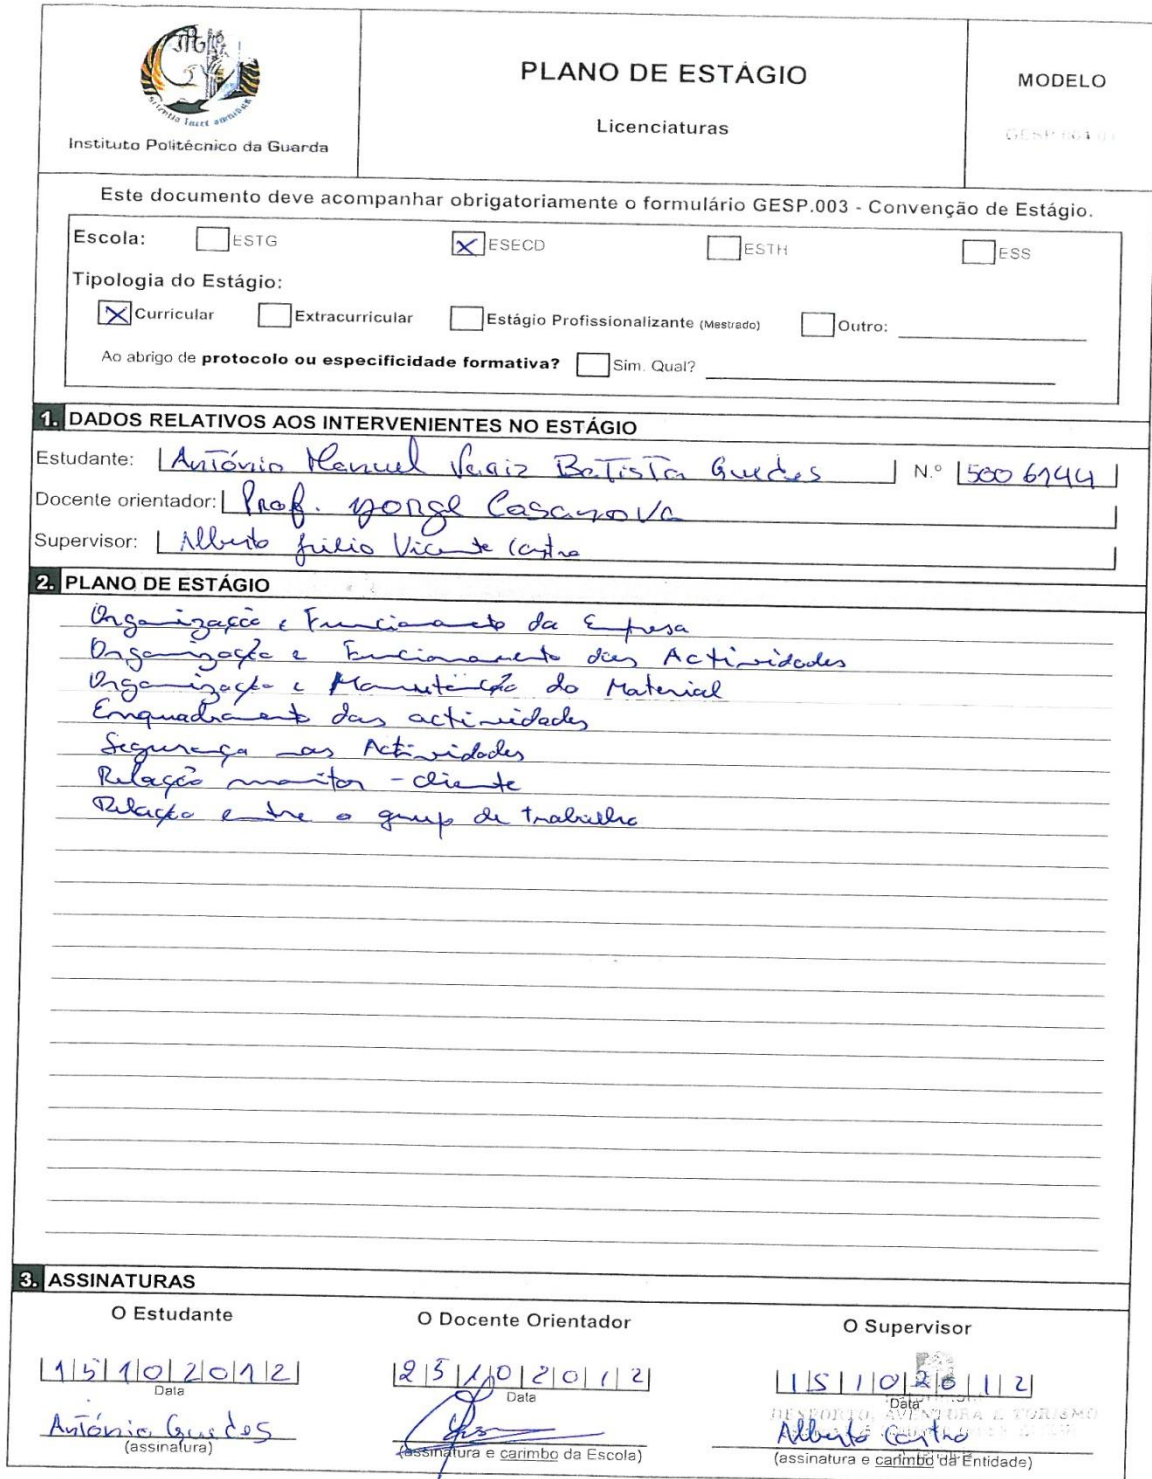 Instituto Politécnico da Guarda
PLANO DE ESTÁGIO
Licenciaturas
MODELO
Este documento deve acompanhar obrigatoriamente o formulário GESP.003 - Convenção de Estágio.
Escola: ESTG X ESECD ESTH ESS
Tipologia do Estágio:
X Curricular Extracurricular Estágio Profissionalizante (Mestrado) Outro:
Ao abrigo de protocolo ou especificidade formativa? Sim. Qual?
1. DADOS RELATIVOS AOS INTERVENIENTES NO ESTÁGIO
Estudante: António Manuel Batista Guedes N.º 5006144
Docente orientador: Prof. Jorge Casanova
Supervisor: Alberto Júlio Vicente Castro
2. PLANO DE ESTÁGIO
Organização e Funcionamento da Empresa
Organização e Funcionamento das Actividades
Organização e Manutenção do Material
Enquadramento das actividades
Segurança nas Actividades
Relação monitor - cliente
Relação entre o grupo de trabalho
3. ASSINATURAS
O Estudante O Docente Orientador O Supervisor
15102012 25102012 15102012
Data Data Data
DESPORTO, AVENTURA E TURISMO
António Guedes Alberto Castro
(assinatura) (assinatura e carimbo da Escola) (assinatura e carimbo da Entidade)